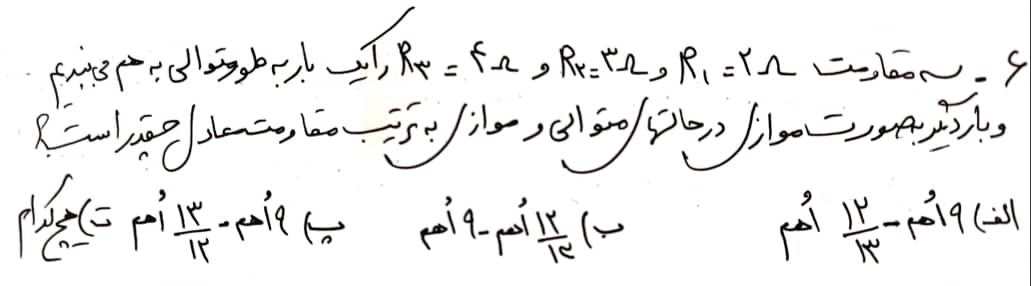 ۶ - سه مقاومت R۱ = ۲Ω و R۲ = ۳Ω و R۳ = ۴Ω را یک بار به طور متوالی به هم می‌بندیم
و بار دیگر به صورت موازی در حالتهای متوالی و موازی به ترتیب مقاومت معادل چقدر است؟
الف) ۹ اُهم - ۱۲/۱۳ اُهم ب) ۱۲/۱۳ اُهم - ۹ اُهم پ) ۹ اُهم - ۱۳/۱۲ اُهم ت) هیچ کدام